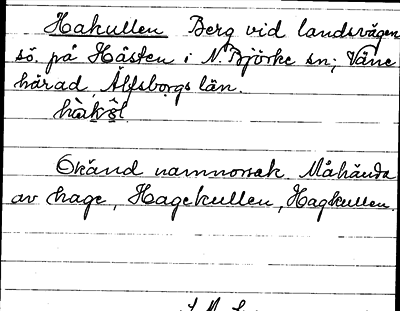 Hakullen Berg vid landsvägen
sö. på Håsten i N. Björke sn; Väne
härad, Älfsborgs län.
Okänd namnorsak. Måhända
av hage, Hagekullen, Hagkullen.